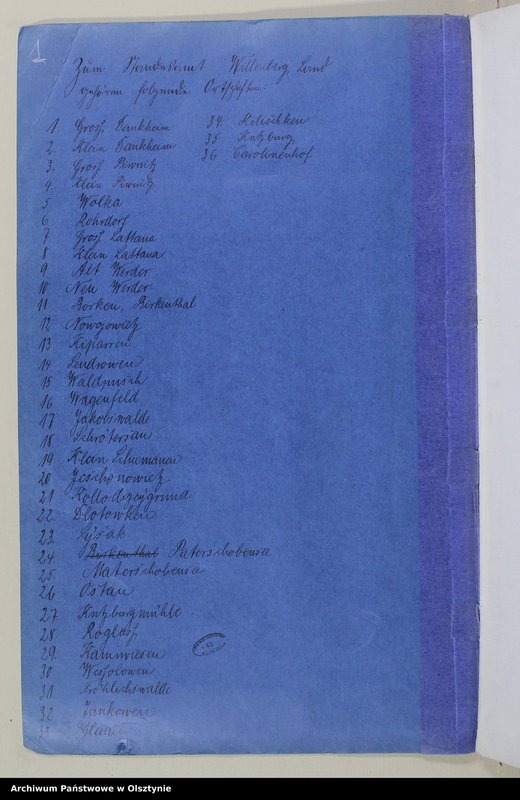 1
Zum Standesamt Willenberg, Land
gehören folgende Ortschaften:
1. Gross. Dankheim
2. Klein Dankheim
3. Gross Piwnitz
4. Klein Piwnitz
5 Wolka
6 Rohrdorf
7 Gross. Lattana
8 Klein Lattana
9 Alt Werder
10 Neu Werder
11 Borken, Birkenthal
12 Nowojowietz
13 Kiparren
14 Lendrowen
15 Waldpusch
16 Wagenfeld
17 Jakobswalde
18 Schrötersau
19 Klein Schiemanen
20 Jeschonowietz
21 Kollodzeygrund
22. Dlotowken
23. Lysak
24 Birkenthal Paterschobensee
25. Materschobensee
26 Ostau
27. Kutzburgmühle
28 Röglas
29. Kannwiesen
30 Wessolowen
31 Fröhlichswalde
32 Jankowen
33 Glauch
34 Kilischken
35 Kutzburg
36 Carolinenhof
Archiwum Państwowe w Olsztynie